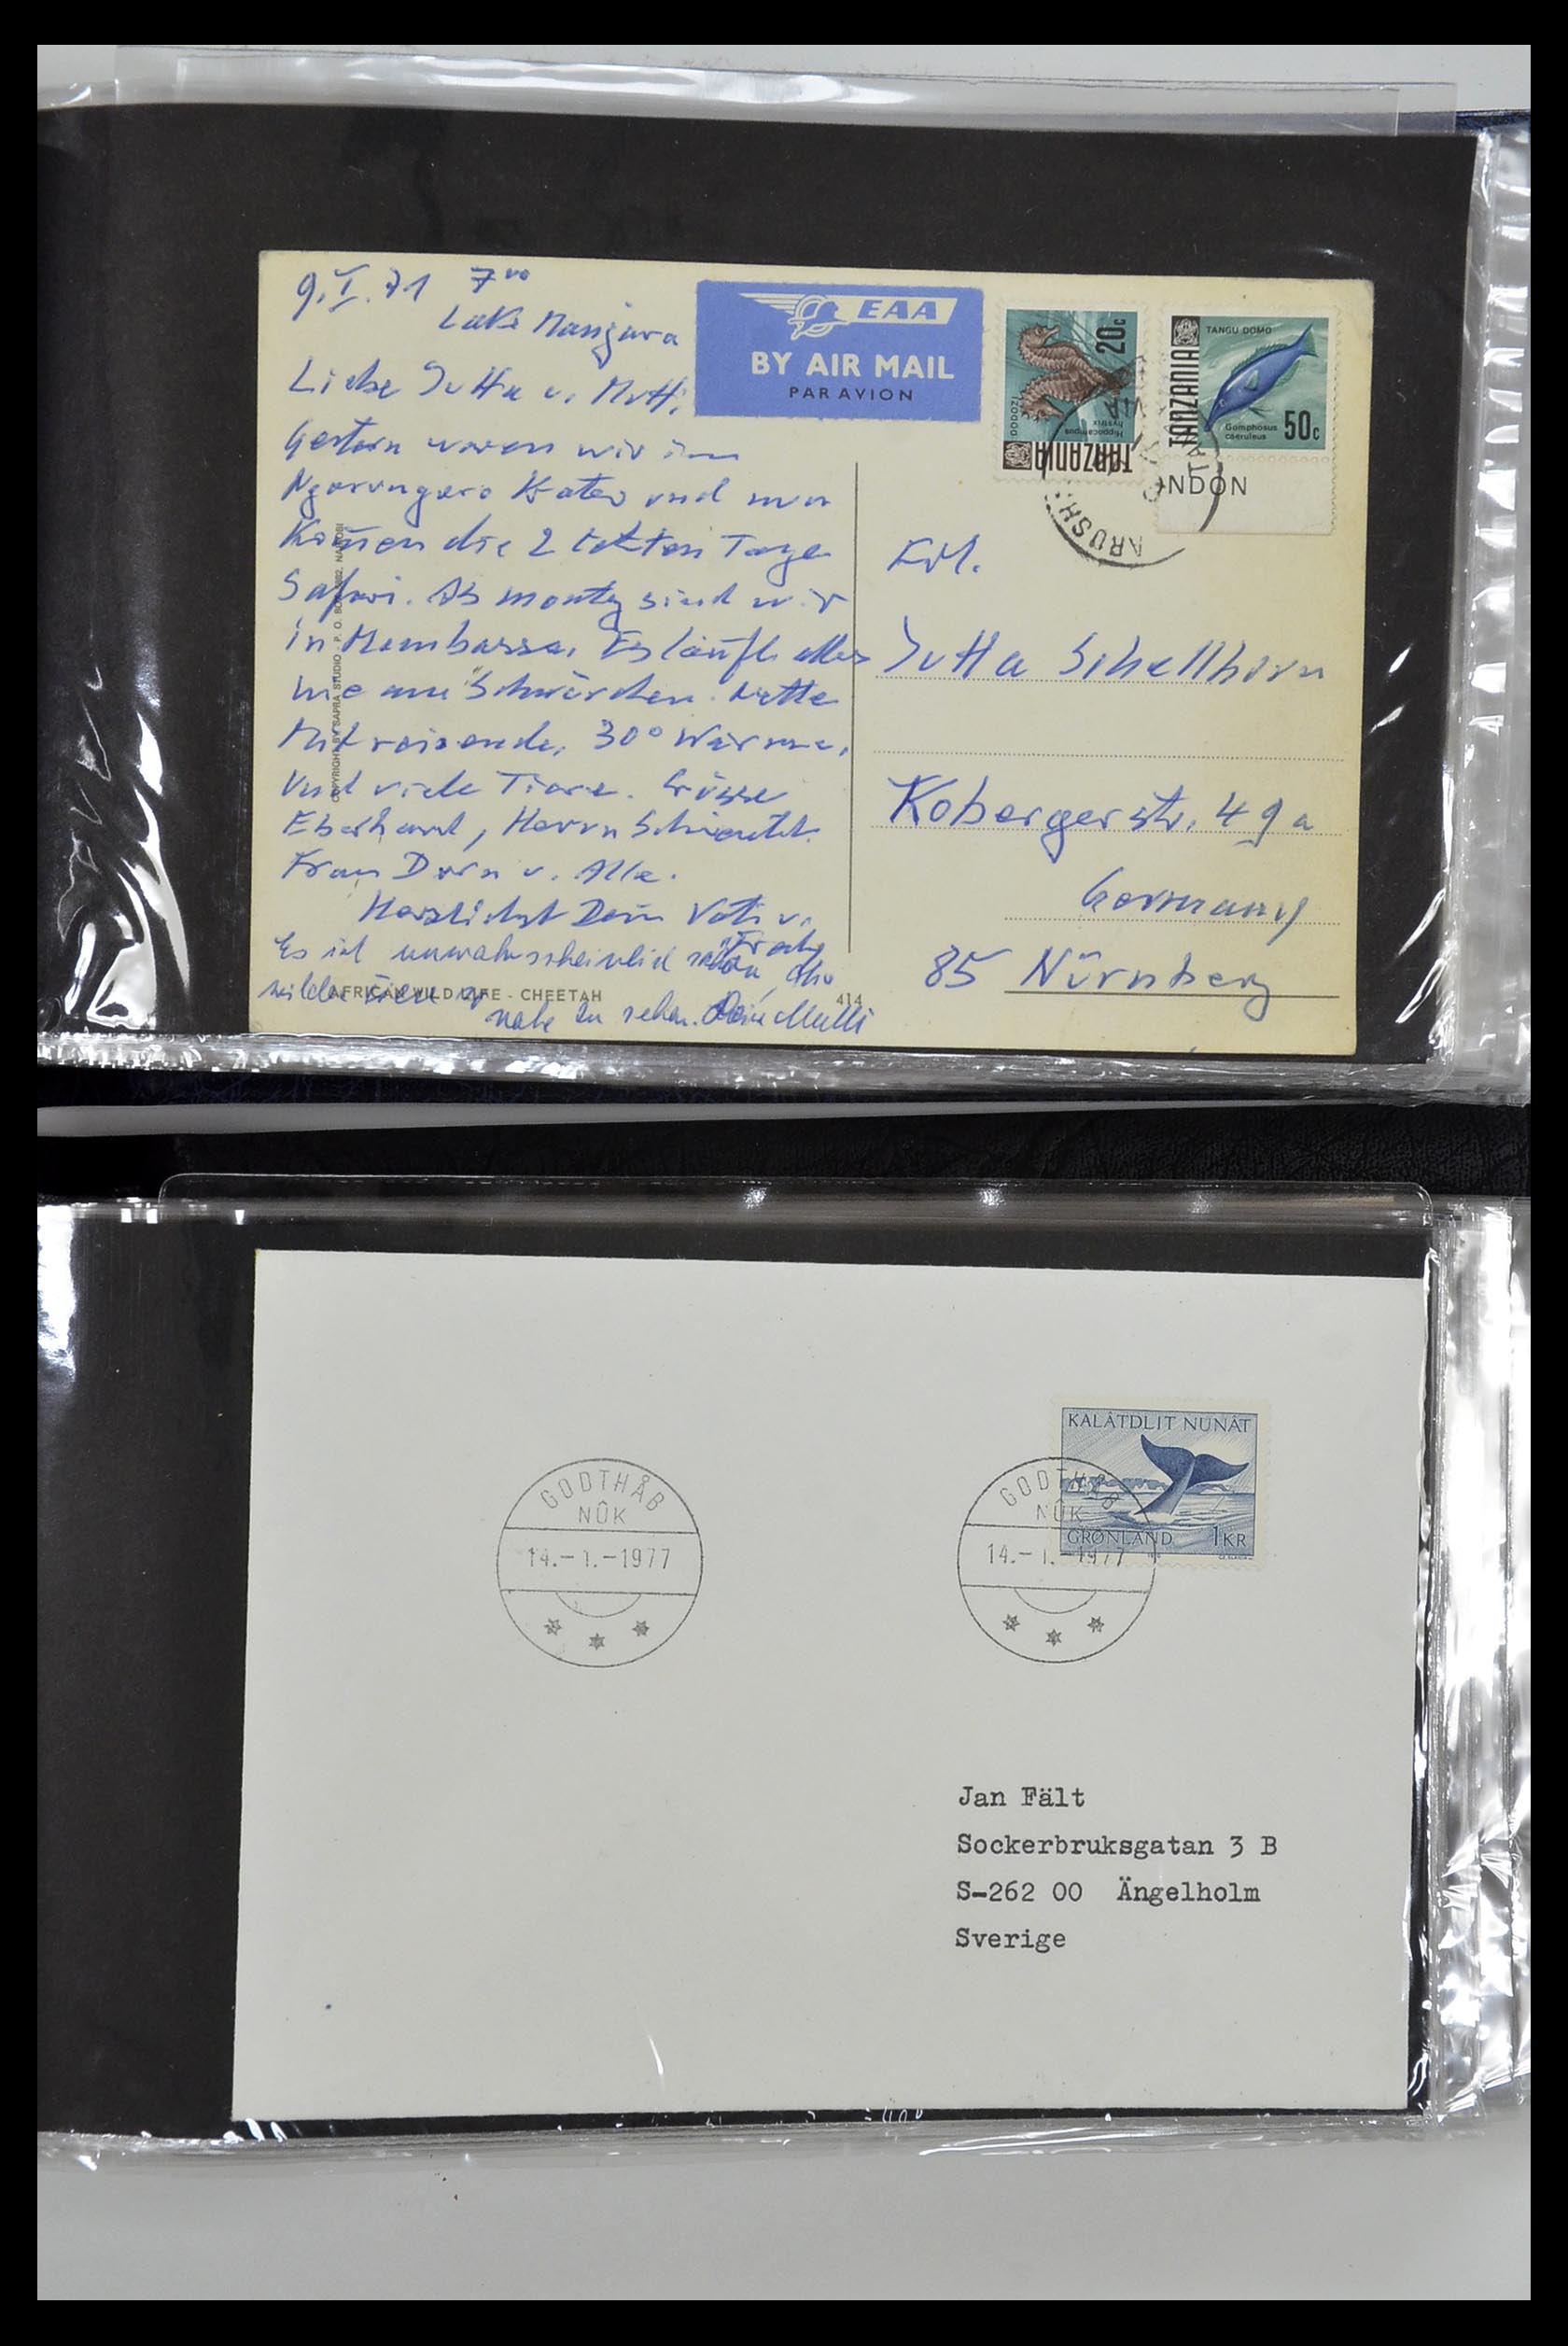 9.I.71 7⁰⁰
Lake Manyara
Liebe Jutta u. Mutti,
Gestern waren wir im
Ngorongoro Krater und nun
kommen die 2 letzten Tage
Safari. Ab montag sind wir
in Mombassa. Es läuft alles
wie am Schnürchen. Nette
Mitreisende, 30° Wärme,
Und viele Tiere. Grüsse
Eberhard, Herrn
Frau Dorn u. Alle.
Herzlichst Dein Vati u.
Es ist unwahrscheinlich schön, die
wilden Tiere so
nahe zu sehen. Deine Mutti
AFRICAN WILD LIFE - CHEETAH
414
COPYRIGHT BY SAPRA STUDIO - P. O. BOX NAIROBI
EAA
BY AIR MAIL
PAR AVION
TANZANIA
20c
Hippocampus
hystrix
TANGU DOMO
TANZANIA
Gomphosus
caeruleus
50c
NDON
ARUSH
Frl.
Jutta Schellhorn
Kobergerstr. 49a
Germany
85 Nürnberg
KALÂTDLIT NUNÂT
GRØNLAND 1KR
GODTHÅB
NÛK
14.-1.-1977
GODTHÅB
NÛK
14.-1.-1977
Jan Fält
Sockerbruksgatan 3 B
S-262 00 Ängelholm
Sverige